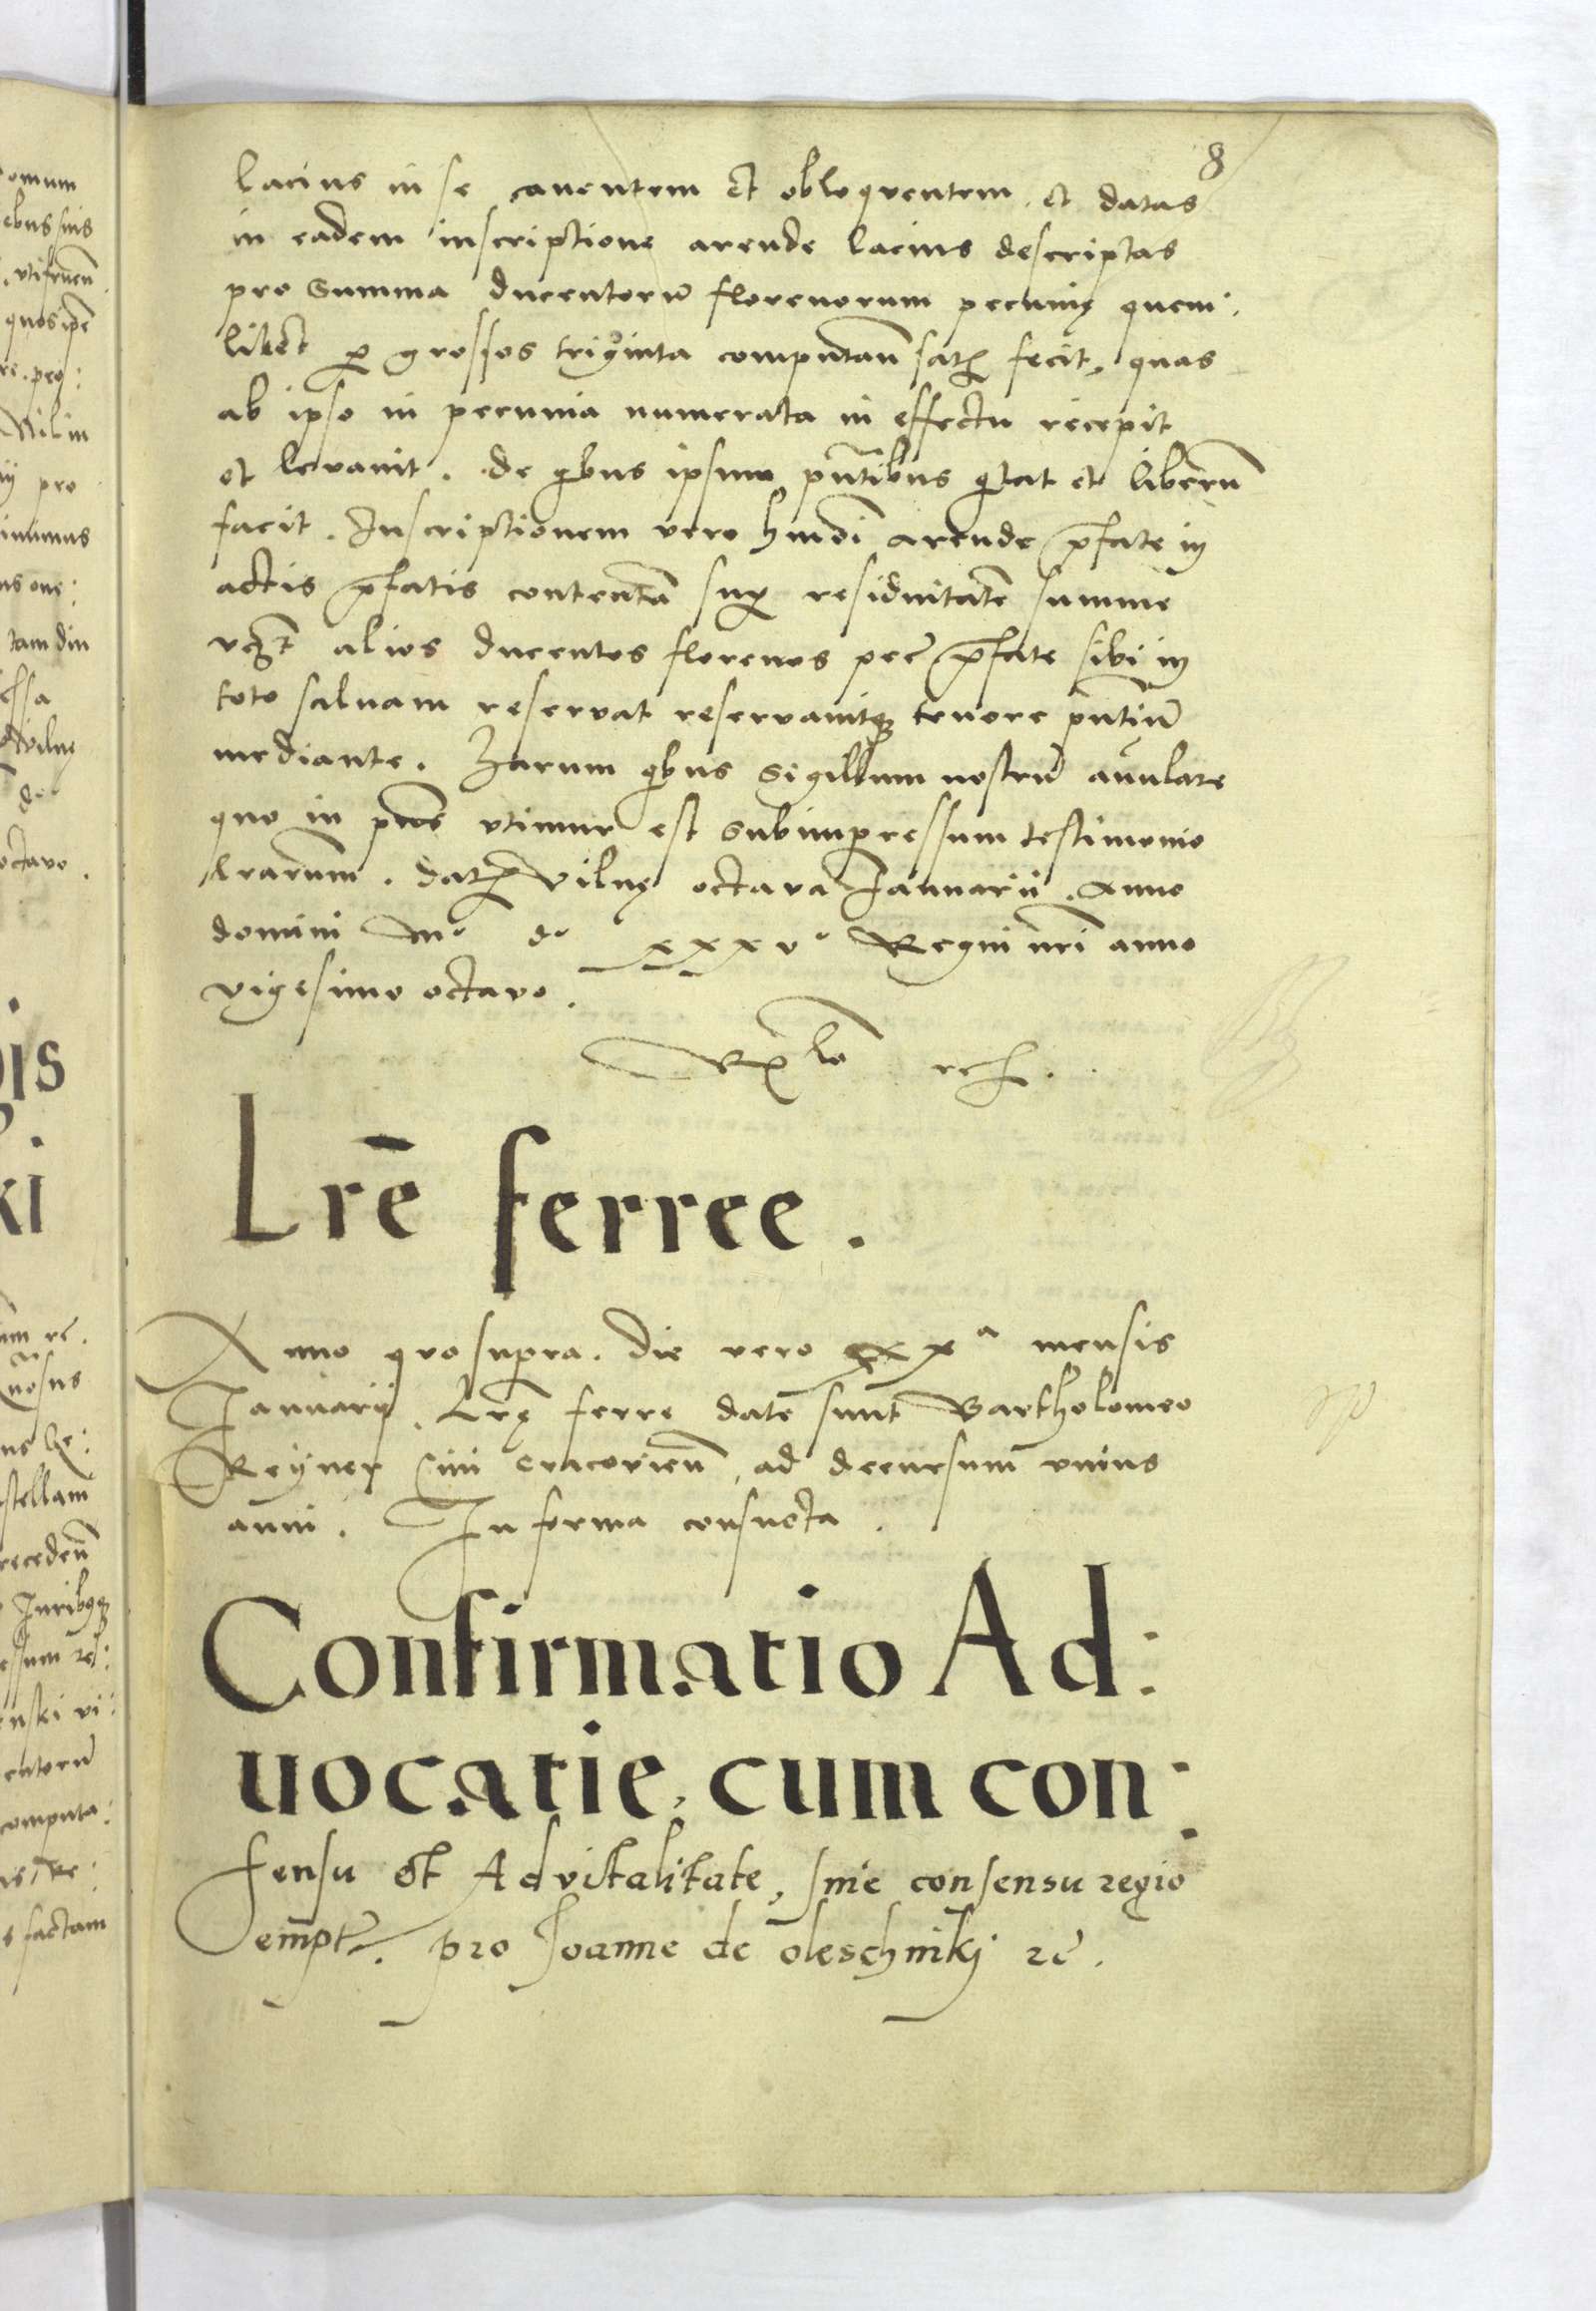 8
lacius in se cauentem et obloquentem et datas
in eadem inscriptione arende lacius descriptas
pro Summa ducentorũ florenorum pecunię quem:
libet p grossos triginta computañ satẹ fecit, quas
ab ipso in pecunia numerata in effectu recepit
et levavit. de qibus ipsum pñtibus qtat et liberũ
facit. Inscriptionem vero hmōi arende p̄fate in
actis p̄fatis contentā sup residuitatē summe
vczt alios ducentos florenos pecc̄ p̄fate sibi in
toto saluam reservat reservavitq tenore pñtiũ
mediante. Harum qibus Sigillum nostrũ añulare
quo in pñs utimur est Subimpressum testimonio
lrarum. Dat Vilnę octava Januarii. Anno
domini Mº dº xxxvº Regni nr̄i anno
vigesimo octavo.
Lrē ferree.
Anno quo supra. die vero xxxª mensis
Januarij. Lrę ferre date sunt Bartholomeo
Reyner Ciui Cracovieñ, ad decursum unius
anni. In forma consueta.
Confirmatio Ad:
uocatie, cum con:
sensu et Advitalitate, sine consensu regio
empt. pro Joanne de oleschnikj rc̄.